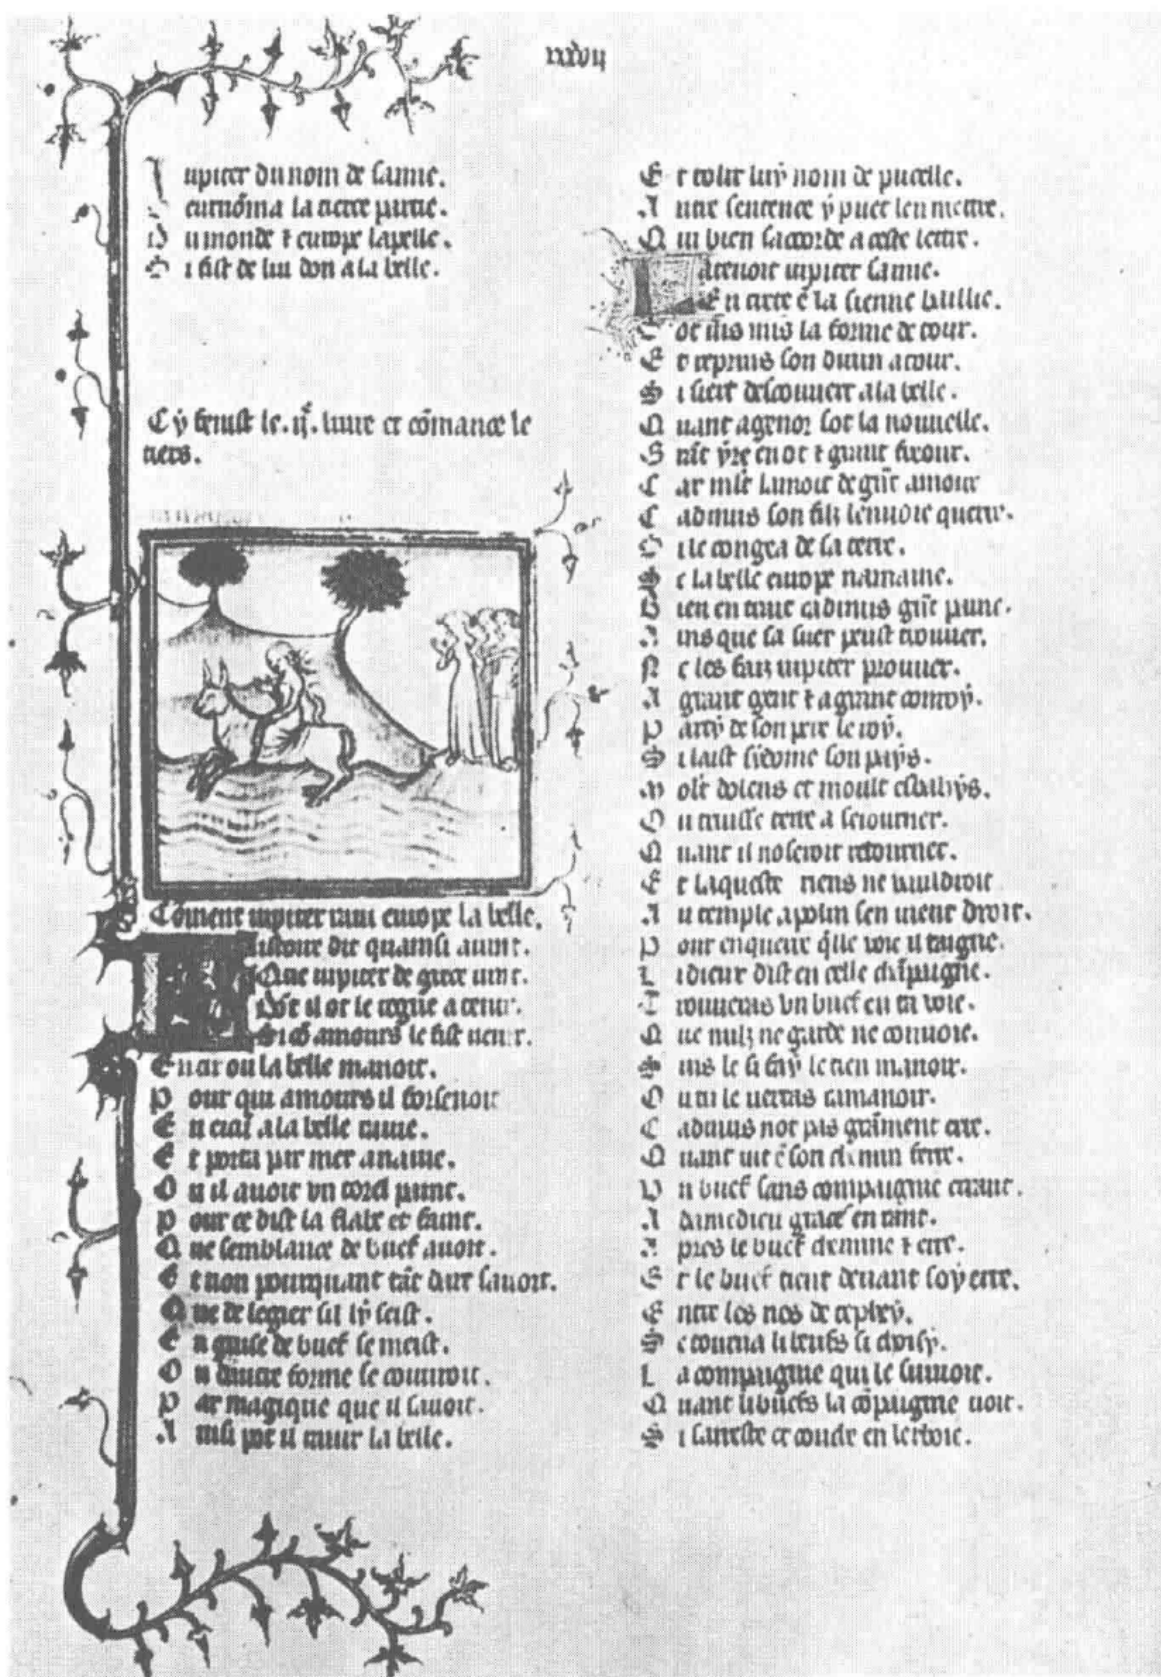 xxxvij
Jupiter du nom de samie.
Seurnõma la tierce partie.
Du monde ⁊ europe lapelle.
Si fist de lui don a la belle.
Cy fenist le .ij. liure et cõmance le
tiers.
Cõment iupiter raui europe la belle.
Listoire dit quainsi auint.
Que iupiter de grece uint.
Dõt il ot le regne a tenir.
Si cõ amours le fist uenir.
En tir ou la belle manoit.
Pour qui amours il forsenoit
En crãt a la belle rauie.
Et porta par mer a nauie.
Ou il auoit vn torel paint.
Pour ce dist la fable et faint.
Que semblance de buef auoit.
Et non pourquant tãt dut sauoir.
Que de legier sil ly seist.
En guise de buef se meist.
Ou dautre forme se couuroit.
Par magique que il sauoit.
Ainsi pot il rauir la belle.
Et tolir luy nom de pucelle.
Autre sentence y puet len mettre.
Qui bien sacorde a ceste lettre.
La tenoit iupiter samie.
En crete ẽ la sienne baillie.
Sot ius mis la forme de tour.
Et reprins son diuin atour.
Si siert descouuert a la belle.
Quant agenor sot la nouuelle.
Grãt yre en ot ⁊ grant freour.
Car mlt lamoit de grãt amour
Cadmus son filz lenuoie querre.
Si le congea de sa terre.
Se la belle europe namaine.
Bien en traut cadmus grãt paine.
Ains que sa suer peust trouuer.
Ne les faiz iupiter prouuer.
A grant gent ⁊ a grant conroy.
Party de son pere le roy.
Si laist sydoine son pays.
Molt dolens et moult esbahys.
Ou truisse terre a seiourner.
Quant il noseroit retourner.
Et laqueste riens ne vauldroit
Au temple apolin sen uient droit.
Pour enquerre q̃lle voie il taigne.
Li dieux dist en celle chãpaigne.
Trouueras vn buef en ta voie.
Que nulz ne garde ne conuoie.
Suis le si fay le tien manoir.
Ou tu le uerras ramanoir.
Cadmus not pas grãment erre.
Quant uit ẽ son chemin ferre.
Un buef sans compaignie errant.
A damedieu graces en rant.
Apres le buef chemine ⁊ erre.
Et le buef tient deuant soy erre.
Entre les nos de cephy.
Se tourna li buefs si choisy.
La compaignie qui le suiuoit.
Quant li buefs la cõpaignie uoit.
Si sarreste et couche en lerboie.